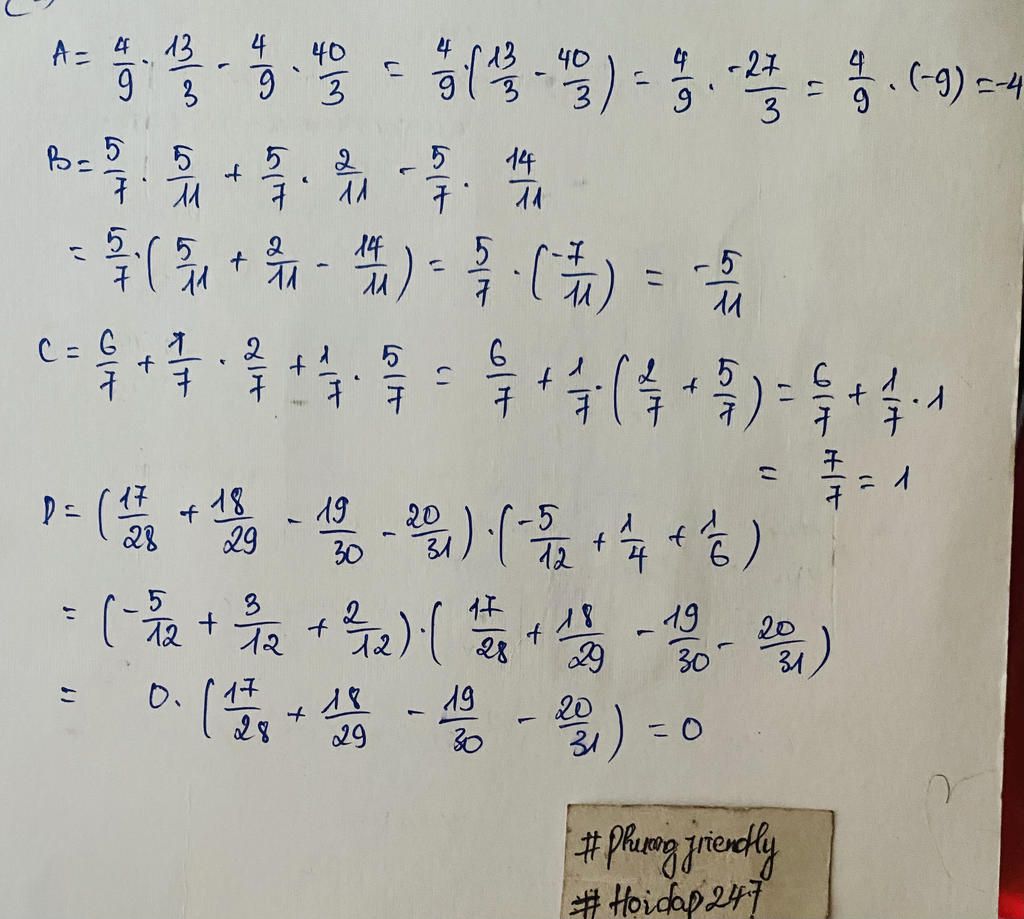 A = 4/9 · 13/3 - 4/9 · 40/3 = 4/9 · (13/3 - 40/3) = 4/9 · -27/3 = 4/9 · (-9) = -4
B = 5/7 · 5/11 + 5/7 · 2/11 - 5/7 · 14/11
= 5/7 · (5/11 + 2/11 - 14/11) = 5/7 · (-7/11) = -5/11
C = 6/7 + 1/7 · 2/7 + 1/7 · 5/7 = 6/7 + 1/7 · (2/7 + 5/7) = 6/7 + 1/7 · 1
= 7/7 = 1
D = (17/28 + 18/29 - 19/30 - 20/31) · (-5/12 + 1/4 + 1/6)
= (-5/12 + 3/12 + 2/12) · (17/28 + 18/29 - 19/30 - 20/31)
= 0 · (17/28 + 18/29 - 19/30 - 20/31) = 0
# Phuong friendly
# Hoidap247